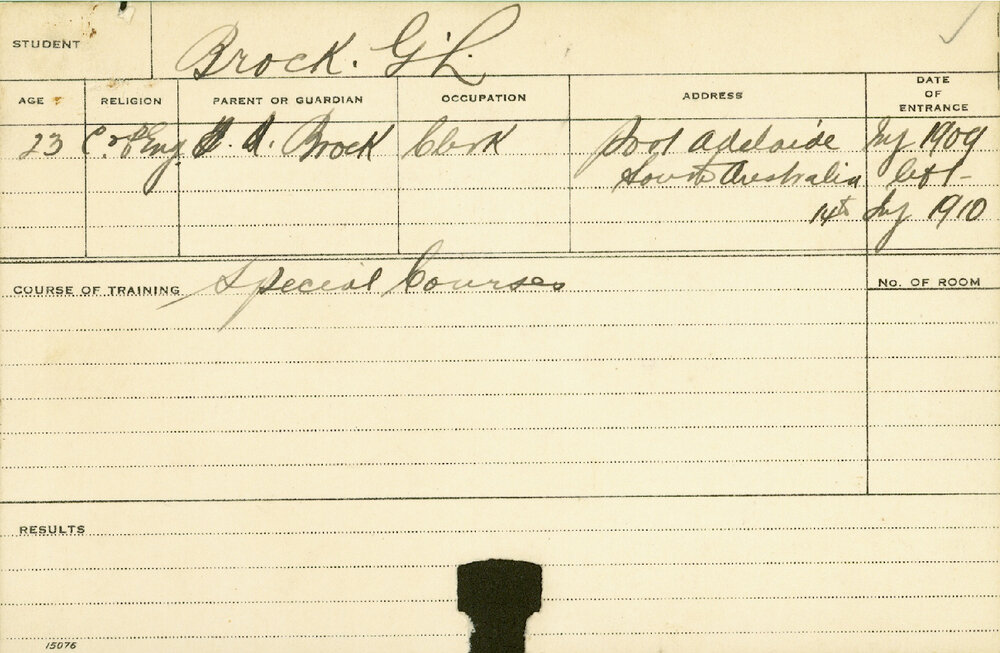 STUDENT Brock. G.L.
AGE RELIGION PARENT OR GUARDIAN OCCUPATION ADDRESS DATE OF ENTRANCE
23 C. of Eng. A. Brock Clerk Port Adelaide Jy 1909
South Australia left
14th Jy 1910
COURSE OF TRAINING Special Courses No. OF ROOM
RESULTS
15076